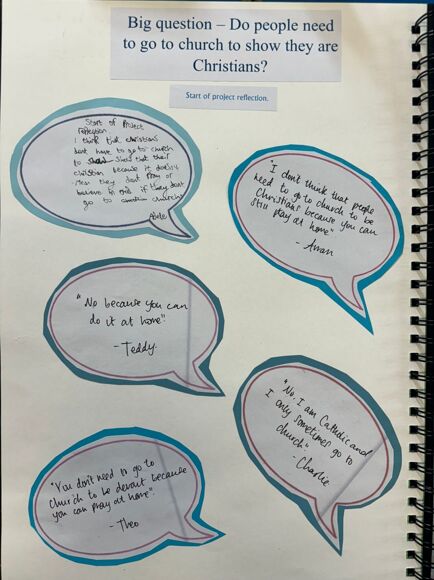 Big question – Do people need
to go to church to show they are
Christians?
Start of project reflection.
Start of Project
reflection
I think that christians
dont have to go to church
to show that their
christian because it doesn't
mean they dont Pray or
believe in God if they dont
go to church
"I don't think that people
need to go to church to be
Christians because you can
still pray at home"
- Arran
"No because you can
do it at home"
- Teddy.
"No, I am Catholic and
I only sometimes go to
church"
- Charlie
"You don't need to go to
Church to be devout because
you can pray at home".
- Theo